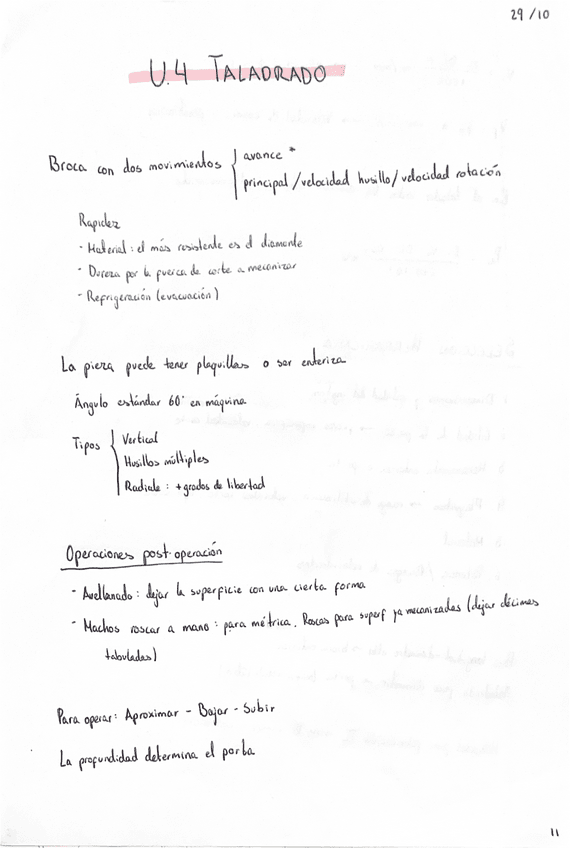 29/10
U.4 TALADRADO
Broca con dos movimientos { avance *
principal/velocidad husillo/velocidad rotación
Rapidez
- Material: el más resistente es el diamante
- Dureza por la fuerza de corte a mecanizar
- Refrigeración (evacuación)
La pieza puede tener plaquillas o ser enteriza
Ángulo estándar 60° en máquina
Tipos { Vertical
Husillos múltiples
Radiale: + grados de libertad
Operaciones post-operación
- Avellanado: dejar la superficie con una cierta forma
- Machos roscar a mano: para métrica. Roscas para superf ya mecanizadas (dejar décimas
tabuladas)
Para operar: Aproximar - Bajar - Subir
La profundidad determina el porta
11